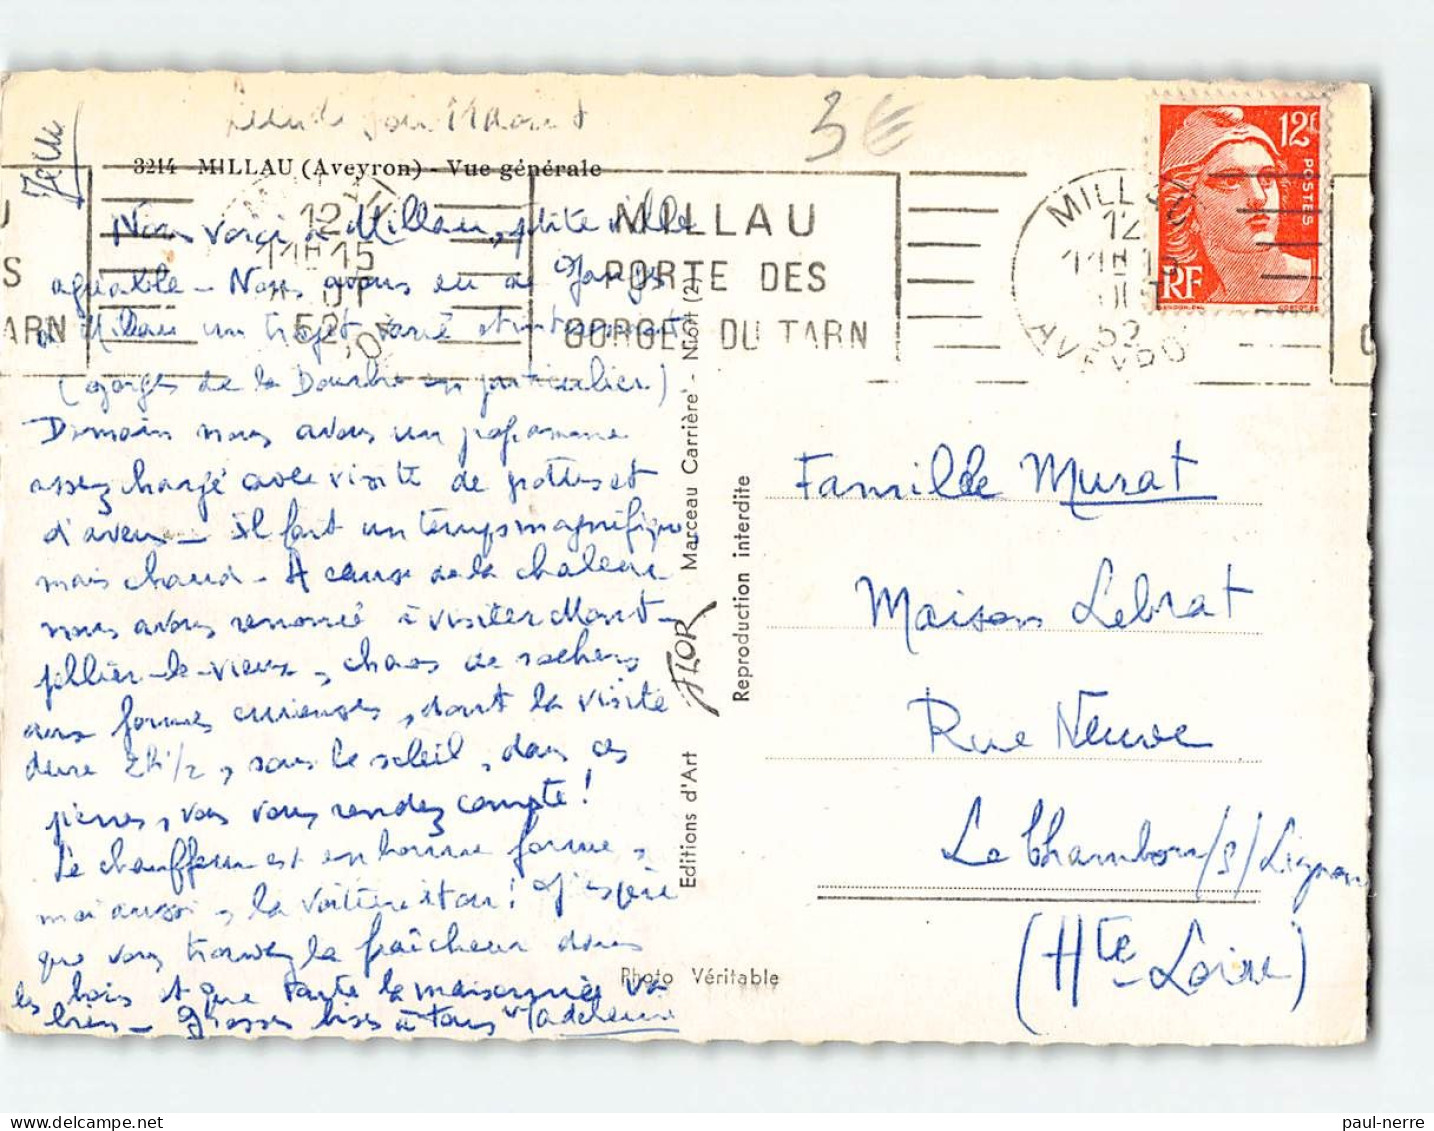 3€
12f
POSTES
RF
3214 - MILLAU (Aveyron) - Vue générale
MILLAU
12
11H15
52
AVEYRON
MILLAU
PORTE DES
GORGES DU TARN
12
11H15
52
ARN
Nous voici à Millau, petite ville
agréable - Nous avons eu de Ganges
à Millau un trajet varié et intéressant
(gorges de la Dourbie en particulier)
Demain nous avons un programme
assez chargé avec visite de grottes et
d'avens - Il fait un temps magnifique,
mais chaud - A cause de la chaleur
nous avons renoncé à visiter Mont-
pellier-le-vieux, chaos de rochers
aux formes curieuses, dont la visite
dure 2h 1/2, sous le soleil, dans ces
pierres, vous vous rendez compte!
Le chauffeur est en bonne forme,
moi aussi, la voiture itou! J'espère
que vous trouvez la fraîcheur dans
les bois et que toute la maisonnée va
bien - Grosses bises à tous Madeleine
Editions d'Art FLOR Marceau Carrière - Niort (2)
Reproduction interdite
Photo Véritable
Famille Murat
Maison Lebrat
Rue Neuve
Le Chambon/s/Lignon
(Hte-Loire)
paul-nerre